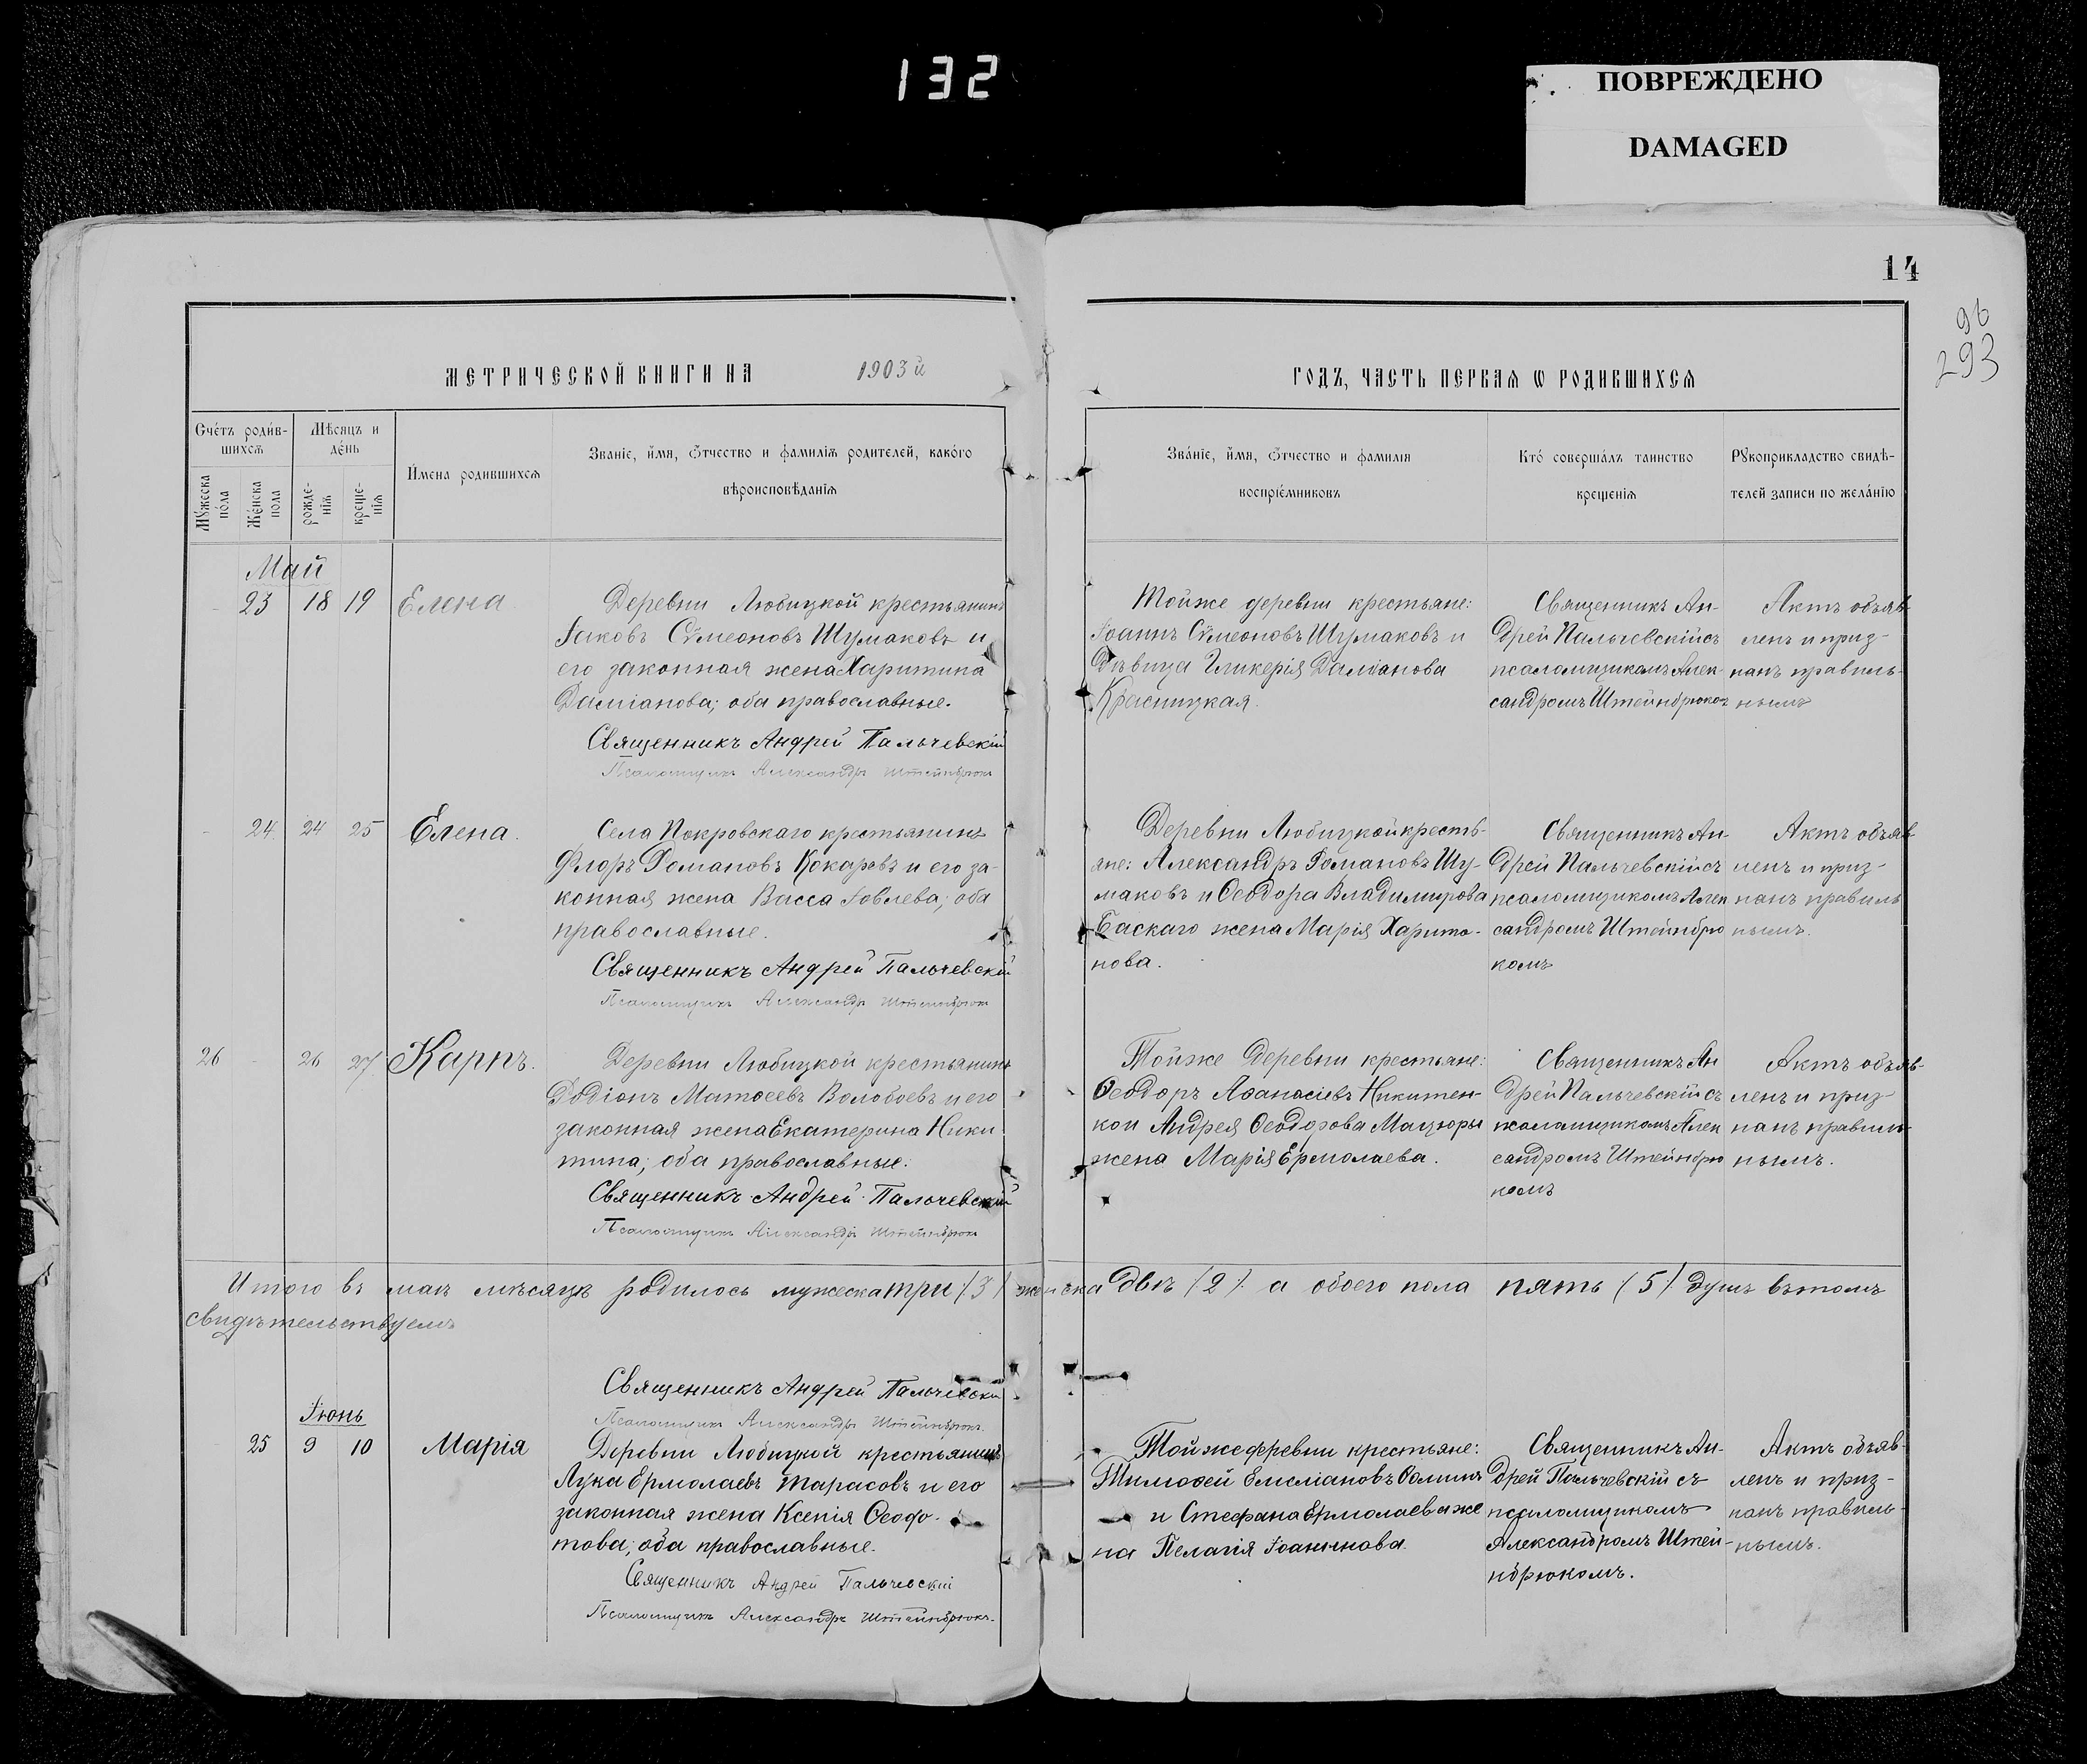 132
ПОВРЕЖДЕНО
DAMAGED
14
96
293
МЕТРИЧЕСКОЙ КНИГИ НА 1903й
ГОДЪ, ЧАСТЬ ПЕРВАЯ Ѡ РОДИВШИХСЯ
Счéтъ роди́в-
шихсѧ
Мѣсяцъ и
дéнь
Мꙋ́жеска
пóла
Жéнска
пола
рожде-
нїѧ
креще-
нїѧ
И҆мена родившихсѧ
Званїе, и҆́мя, ѻ҆́тчество и фамилїѧ родителей, какóго
вѣроисповѣданїѧ
Звáнїе, и҆́мя, ѻ҆́тчество и фамилїя
воспрїéмниковъ
Ктó совершáлъ таинство
крещенїѧ
Рꙋкоприкладство свидѣ-
телей записи по желáнїю
Май
23 18 19 Елена
Деревни Любицкой крестьянинъ
Іаковъ Сѵмеоновъ Шумаковъ и
его законная жена Харитина
Даміанова; оба православные.
Священникъ Андрей Пальчевскій
Псаломщикъ Александръ Штейнбрюкъ
Тойже деревни крестьяне:
Іоаннъ Сѵмеоновъ Шумаковъ и
Дѣвица Гликерія Даміанова
Красницкая.
Священникъ Ан-
дрей Пальчевскій съ
псаломщикомъ Алек-
сандромъ Штейнбрюком
Актъ объяв-
ленъ и приз-
нанъ правиль-
нымъ
24 24 25 Елена.
Села Покровскаго крестьянинъ
Флоръ Романовъ Кокаревъ и его за-
конная жена Васса Іовлева; оба
православные.
Священникъ Андрей Пальчевскій
Псаломщикъ Александръ Штейнбрюкъ
Деревни Любицкой кресть-
яне: Александръ Романовъ Шу-
маковъ и Ѳеодора Владимирова
Баскаго жена Марія Харито-
нова.
Священникъ Ан-
дрей Пальчевскій съ
псаломщикомъ Алек
сандромъ Штейнбрю
комъ
Актъ объяв-
ленъ и приз-
нанъ правиль
нымъ.
26 26 27 Карпъ.
Деревни Любицкой крестьянинъ
Родіонъ Матѳеевъ Волобоевъ и его
законная жена Екатерина Ники
тина; оба православные.
Священникъ Андрей Пальчевскій
Псаломщикъ Александръ Штейнбрюкъ
Тойже деревни крестьяне:
Ѳеодоръ Аѳанасіевъ Никитен-
ко и Андрея Ѳеодорова Мацюры
жена Марія Ермолаева.
Священникъ Ан
дрей Пальчевскій съ
псаломщикомъ Алек
сандромъ Штейнбрю
комъ
Актъ объяв-
ленъ и приз-
нанъ правиль-
нымъ.
Итого въ маѣ мѣсяцѣ родилось мужеска три (3) женска двѣ (2) а обоего пола пять (5) душъ въ томъ
свидѣтельствуемъ
Священникъ Андрей Пальчевскій
Псаломщикъ Александръ Штейнбрюкъ.
Іюнь
25 9 10 Марія
Деревни Любицкой крестьянинъ
Лука Ермолаевъ Тарасовъ и его
законная жена Ксенія Ѳеодо-
това; оба православные.
Священникъ Андрей Пальчевскій
Псаломщикъ Александръ Штейнбрюкъ.
Той же деревни крестьяне:
Тимоѳей Емеліановъ Ѳоминъ
и Стефана Ермолаева же
на Пелагія Іоаннова.
Священникъ Ан-
дрей Пальчевскій съ
псаломщикомъ
Александромъ Штей-
нбрюкомъ.
Актъ объяв-
ленъ и приз-
нанъ правиль-
нымъ.